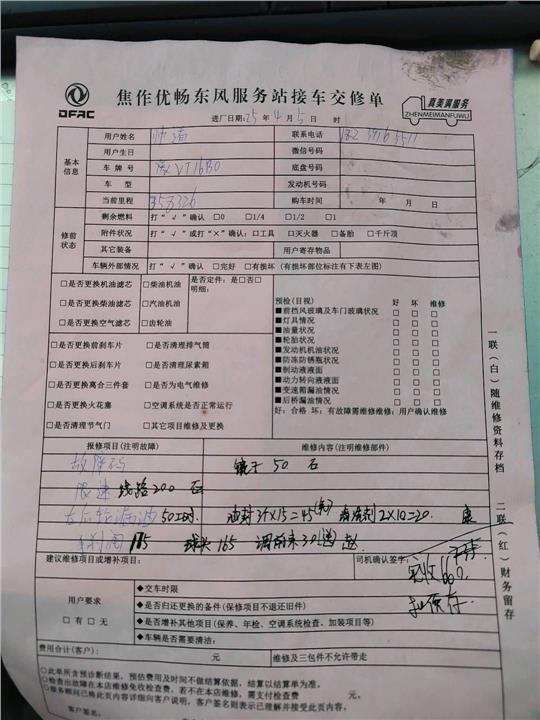 DFAC
焦作优畅东风服务站接车交修单
真美满服务
ZHENMEIMANFUWU
进厂日期：25 年 4 月 5 日 时
基本信息
用户姓名 联系电话
用户生日 微信号码
车牌号 豫VT16B0 底盘号码
车型 发动机号码
当前里程 353326 购车时间 年 月 日
修前状态
剩余燃料 打“√”确认 □0 □1/4 □1/2 □1
附件状况 打“√”或打“×”确认：□工具 □灭火器 □备胎 □千斤顶
其它装备 用户寄存物品
车辆外部情况 打“√”确认 □完好 □有损坏（有损坏部位标注有下表左图）
□是否更换机油滤芯 □柴油机油
□是否更换柴油滤芯 □汽油机油
□是否更换空气滤芯 □齿轮油
是否定件：是□否□
明细：
□是否更换前刹车片 □是否清理排气筒
□是否更换后刹车片 □是否清理尿素箱
□是否更换离合三件套 □是否为电气维修
□是否更换火花塞 □空调系统是否正常运行
□是否清理节气门 □其它项目维修及更换
预检（目视） 好 坏 维修
■前挡风玻璃及车门玻璃状况 □ □ □
■灯具情况 □ □ □
■油量状况 □ □ □
■轮胎状况 □ □ □
■发动机机油状况 □ □ □
■防冻防锈瓶状况 □ □ □
■制动液液面 □ □ □
■动力转向液液面 □ □ □
■变速箱漏油情况 □ □ □
■后桥漏油情况 □ □ □
好：合格 坏：有故障需维修维修：用户确认维修
报修项目（注明故障） 维修内容（注明维修部件）
故障码 镜子 50 石
限速 线路200 石
右后轮漏油 50工时 油封3个X15=45 清洗剂2X10=20 康
185 球头165 调前束30 赵
建议维修项目或增补项目： 司机确认签字：
实收660
用户要求
□有 □无
◆交车时限
◆是否归还更换的备件（保修项目不退还旧件）
◆是否增补其他项目（保养、年检、空调系统检查、加装项目等）
◆车辆是否需要清洁：
费用合计（客户）： 元 维修及三包件不允许带走
○此单所含预诊断结果，预估费用及时间不做结算依据，结算以结算单为准。
○检查出故障在本店维修免收检查费，若不在本店维修，需支付检查费 元。
○服务顾问已将此页内容详细向客户说明，客户签名则表示已理解并接受此页内容。
客户签名：
一联（白）随维修资料存档
二联（红）财务留存